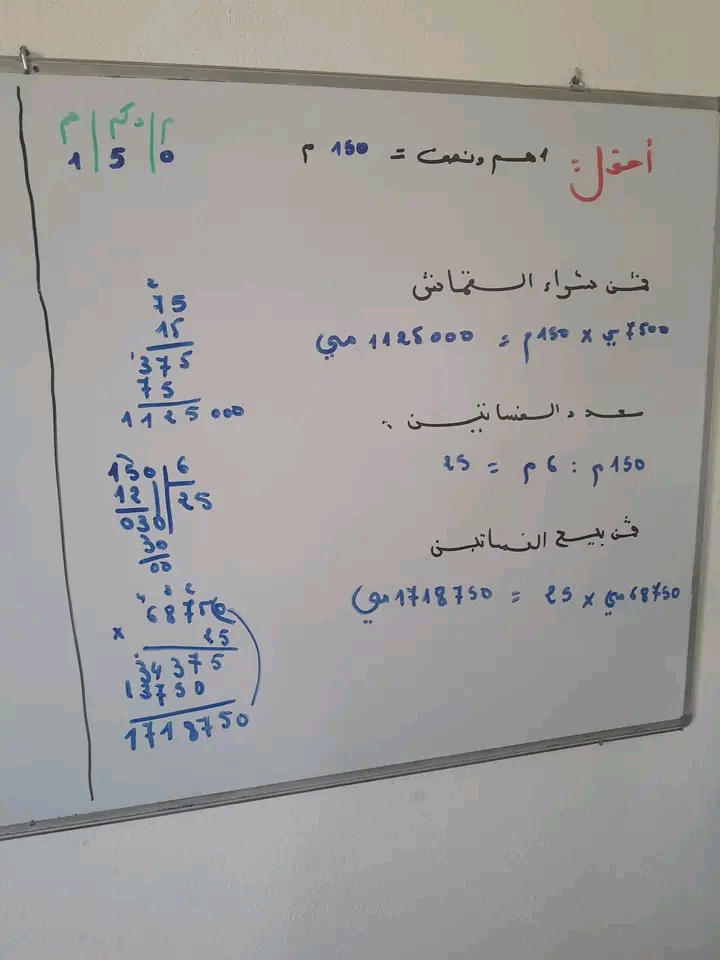 أحول: 1 هم ونصف = 150 م
ثمن شراء القماش
7500 مي × 150 م = 1125000 مي
عدد الفساتين :
150 م : 6 م = 25
ثمن بيع الفساتين
68750 مي × 25 = 1718750 مي
م | دكم | م
1 | 5 | 0
2
75
15
1
375
75
1125000
150 | 6
12 | 25
030
30
00
68750
× 25
34375
13750
1718750